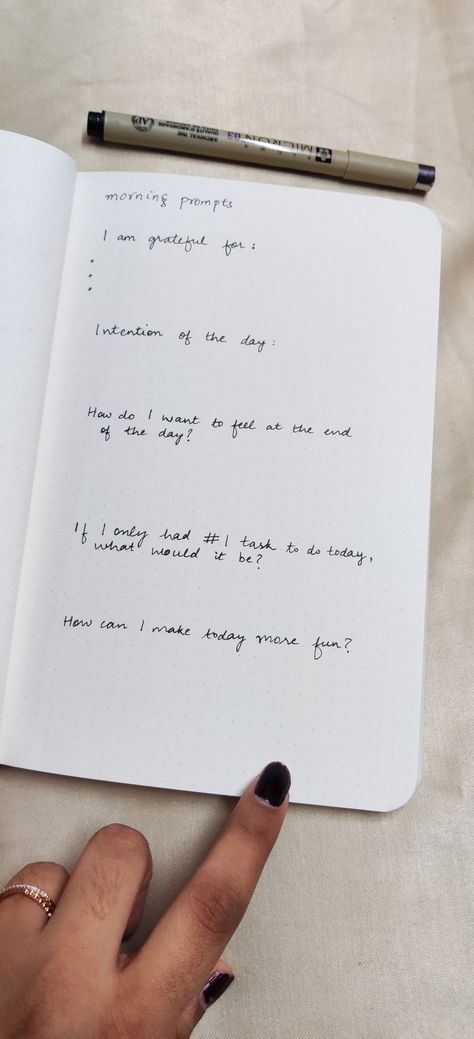 MICRON 03
ARCHIVAL INK
morning prompts
I am grateful for :
•
•
•
Intention of the day :
How do I want to feel at the end
of the day?
If I only had #1 task to do today,
what would it be?
How can I make today more fun?